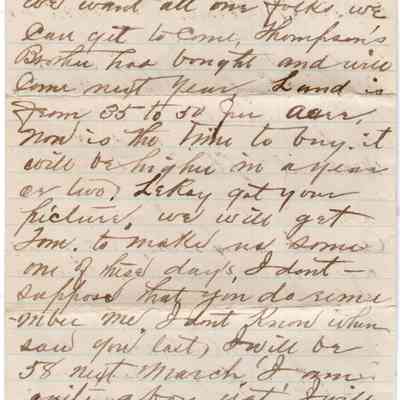 we want all our folks we
can get to come, Thompson's
Brother has bought and will
Come next Year Land is
from 35 to 50 per acer,
now is the time to buy. it
will be higher in a year
or two. LeRoy got your
picture. we will get
Tom. to make us some
one of these days, I dont -
suppose that you do reme
-mber me. I dont Know when
saw you last, I will be
58 next March I am
quite a boy yet I will